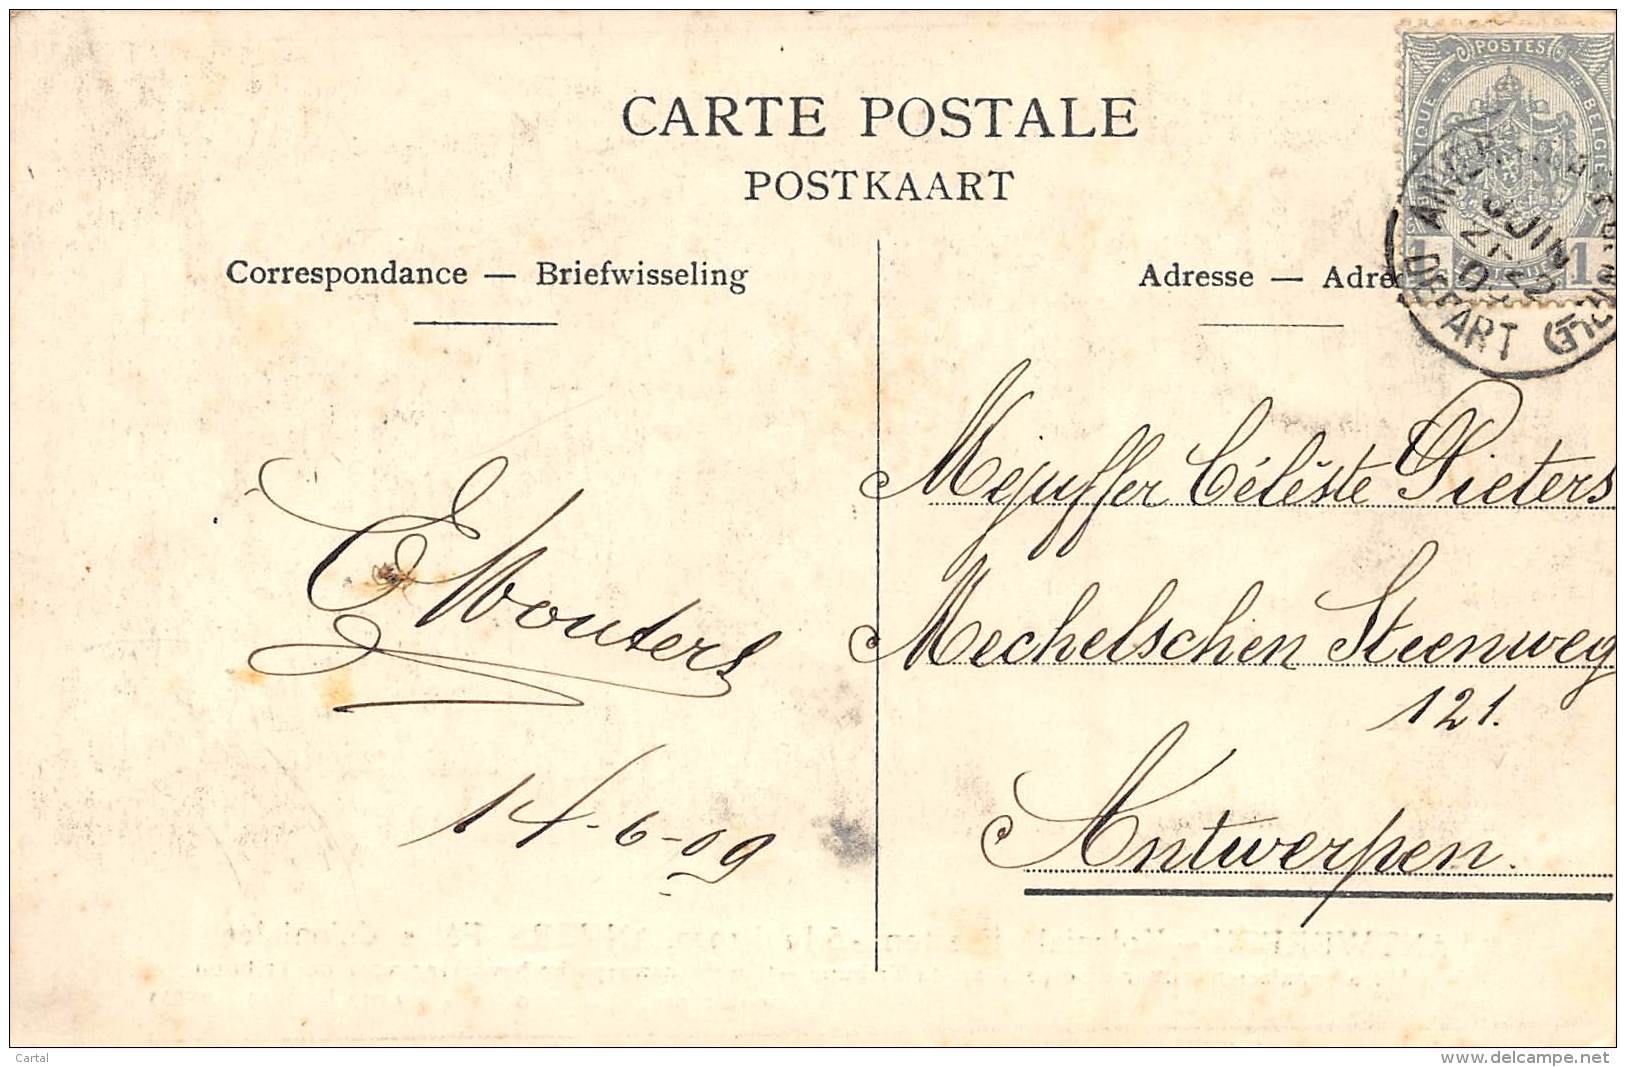 CARTE POSTALE
POSTKAART
Correspondance — Briefwisseling
Adresse — Adre
POSTES
BELGIE
1 1
ANVERS
JUIN
DEPART
E Wouters
14-6-09
Mejuffer Céleste Pieters
Mechelschen Steenweg
121.
Antwerpen.
Cartal
www.delcampe.net